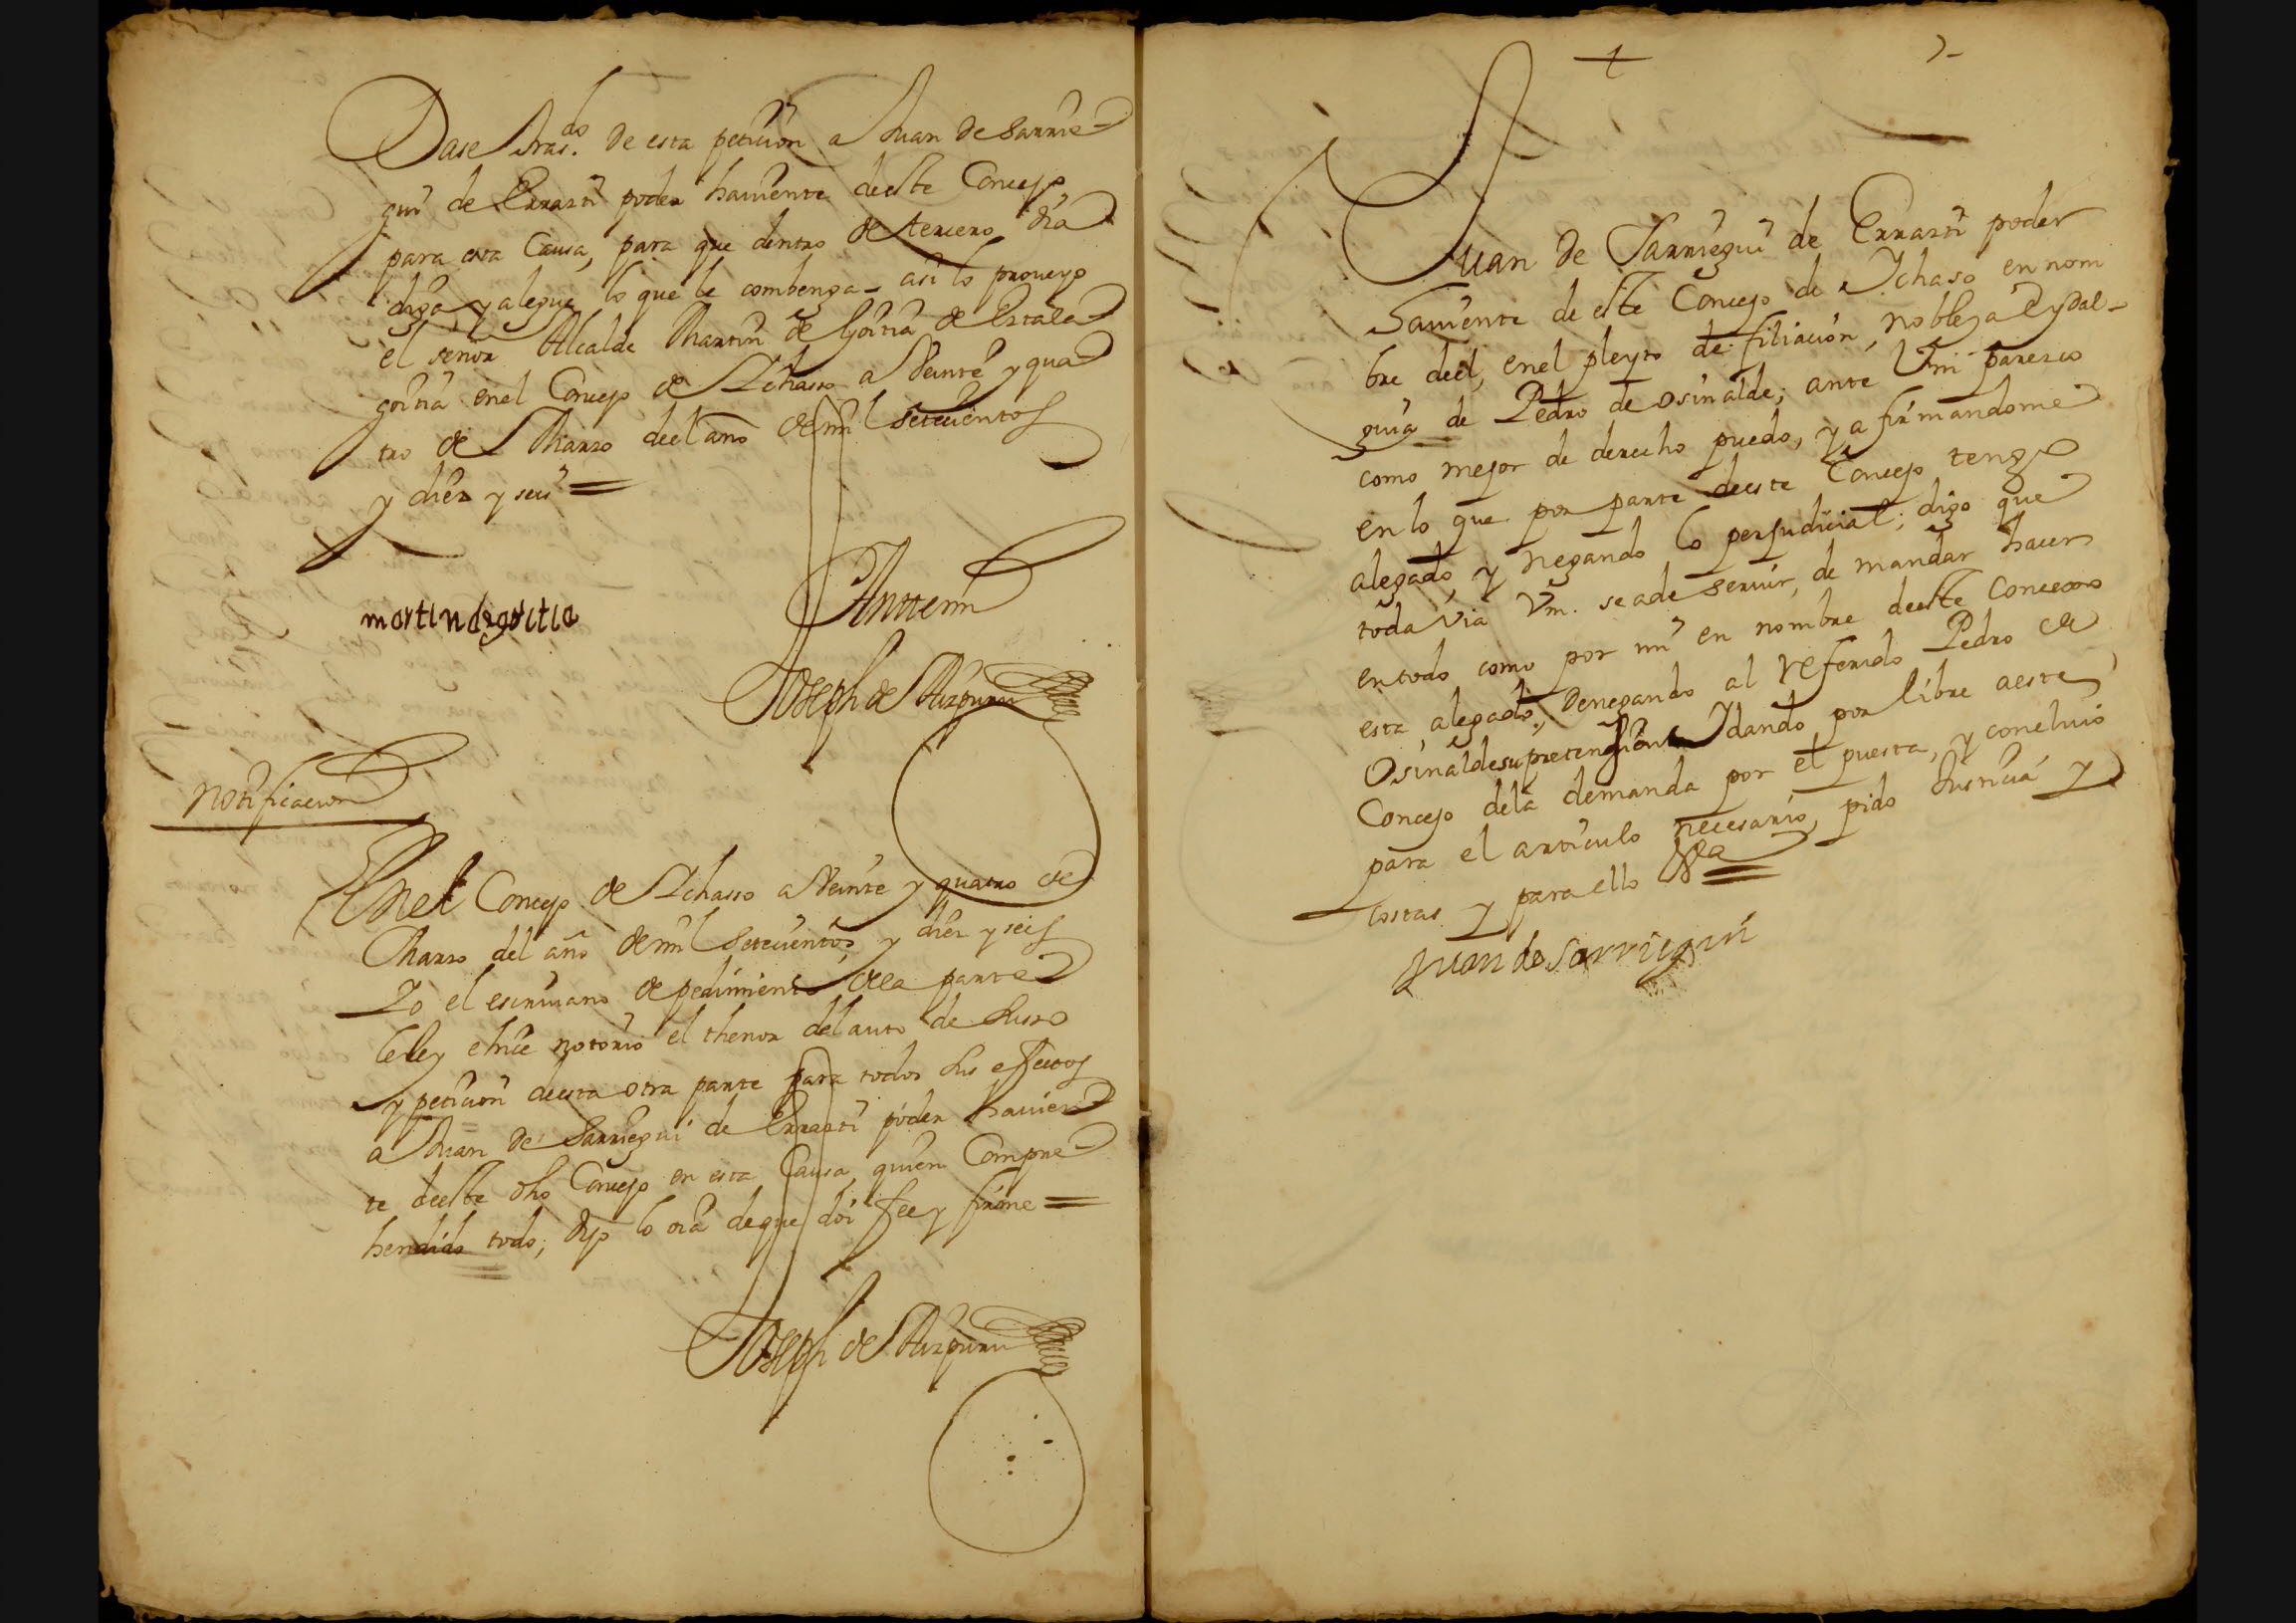 Dase tras.do de esta petiçion a Juan de Sarrie-
gui de Errasti poder haviente deeste Concejo
para esta Causa, para que dentro de tercero dia
diga y alegue lo que le combenga - asi lo proveyo
el señor Alcalde Martin de Goitia de Estala
goitia enel Concejo de Ichasso a Veinte y qua
tro de Marzo deel año de mil setecientos
y diez y seis =
martin de goitia
Antemi
Joseph de Aizpuru
Notificacion
Enel Concejo de Ichasso a Veinte y quatro de
Marzo del año de mil setecientos y diez y seis
Yo el escrivano de pedimiento dela parte
lehey e hice notorio el thenor del auto de suso
y peticion deesta otra parte para todos sus effectos
a Juan de Sarriegui de Errasti poder havien
te deeste dho Concejo en esta Causa, quien Compre-
hendido todo, dijo lo oia de que doi fee y firme =
Joseph de Aizpuru
7
Juan de Sarriegui de Errasti poder
haviente de este Concejo de Ichaso en nom
bre deel, enel pleyto de filiacion, nobleza e ydal-
guia de Pedro de osinalde; ante Vm paresco
como mejor de derecho puedo, y a firmandome
en lo que por parte deeste Concejo tengo
alegado, y negando lo perjudicial; digo que
toda via Vm. seade servir, de mandar hacer
entodo como por mi en nombre deeste Concexo
esta alegado, Denegando al referido Pedro de
Osinalde su pretension Y dando por libre aeste
Concejo dela demanda por el puesta, y concluio
para el articulo necesario, pido Justicia y
costas y para ello &a =
Juan de Sarriegui